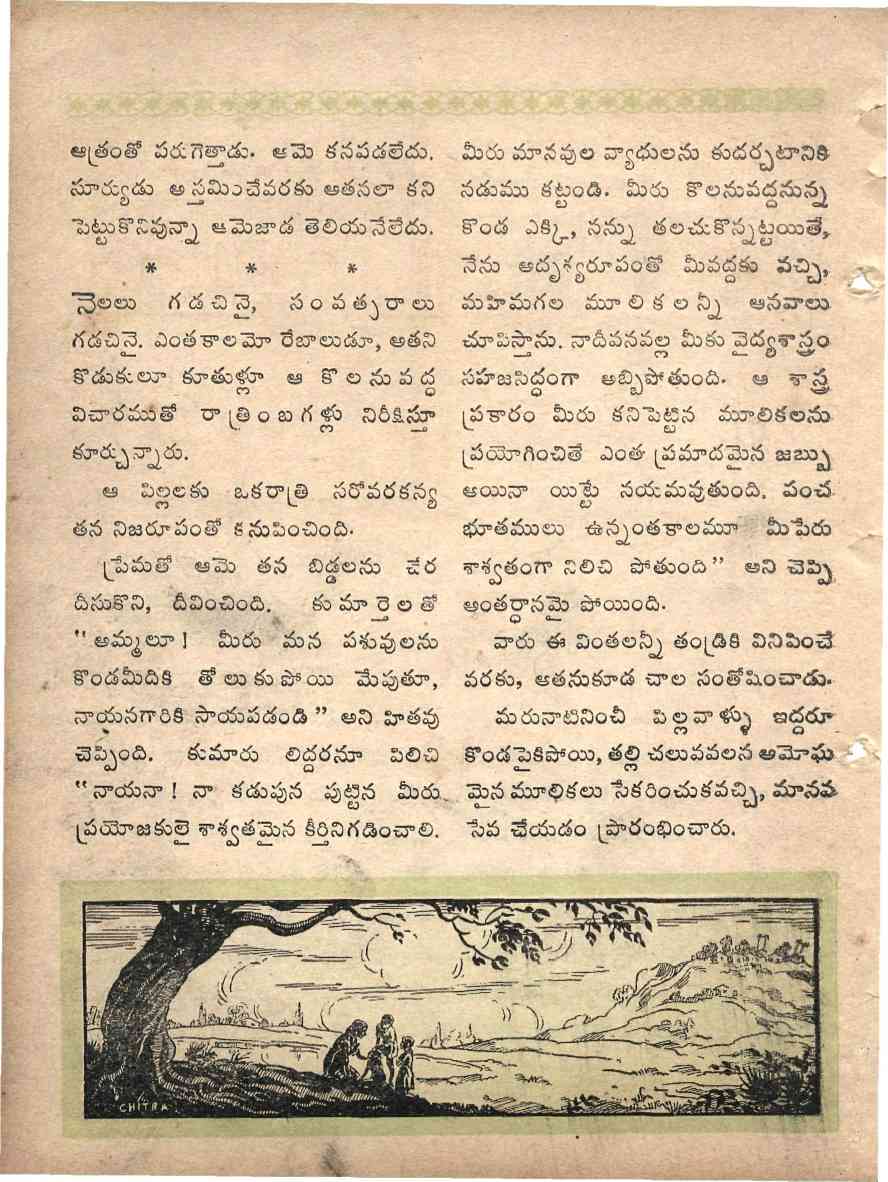 ఆత్రంతో పరుగెత్తాడు. ఆమె కనపడలేదు.
సూర్యుడు అస్తమించేవరకు ఆతనలా కని
పెట్టుకొనివున్నా ఆమెజాడ తెలియనేలేదు.
* * *
నెలలు గడచినై, సంవత్సరాలు
గడచినై. ఎంతకాలమో రేబాలుడూ, అతని
కొడుకులూ కూతుళ్లూ ఆ కొలనువద్ద
విచారముతో రాత్రింబగళ్లు నిరీక్షిస్తూ
కూర్చున్నారు.
ఆ పిల్లలకు ఒకరాత్రి సరోవరకన్య
తన నిజరూపంతో కనుపించింది.
ప్రేమతో ఆమె తన బిడ్డలను చేర
దీసుకొని, దీవించింది. కుమార్తెలతో
"అమ్మలూ! మీరు మన పశువులను
కొండమీదికి తోలుకుపోయి మేపుతూ,
నాయనగారికి సాయపడండి" అని హితవు
చెప్పింది. కుమారు లిద్దరనూ పిలిచి
"నాయనా! నా కడుపున పుట్టిన మీరు
ప్రయోజకులై శాశ్వతమైన కీర్తినిగడించాలి.
మీరు మానవుల వ్యాధులను కుదర్చటానికి
నడుము కట్టండి. మీరు కొలనువద్దనున్న
కొండ ఎక్కి, నన్ను తలచుకొన్నట్టయితే,
నేను అదృశ్యరూపంతో మీవద్దకు వచ్చి,
మహిమగల మూలికలన్నీ ఆనవాలు
చూపిస్తాను. నాదీవనవల్ల మీకు వైద్యశాస్త్రం
సహజసిద్ధంగా అబ్బిపోతుంది. ఆ శాస్త్ర
ప్రకారం మీరు కనిపెట్టిన మూలికలను
ప్రయోగించితే ఎంత ప్రమాదమైన జబ్బు
అయినా యిట్టే నయమవుతుంది. పంచ
భూతములు ఉన్నంతకాలమూ మీపేరు
శాశ్వతంగా నిలిచి పోతుంది" అని చెప్పి
అంతర్ధానమై పోయింది.
వారు ఈ వింతలన్నీ తండ్రికి వినిపించే
వరకు, ఆతనుకూడ చాల సంతోషించాడు.
మరునాటినించీ పిల్లవాళ్ళు ఇద్దరూ
కొండపైకిపోయి, తల్లి చలువవలన అమోఘ
మైన మూలికలు సేకరించుకవచ్చి, మానవ
సేవ చేయడం ప్రారంభించారు.
CHITRA